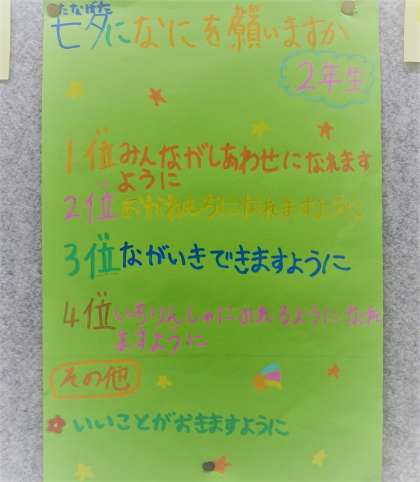 たなばた
七夕になにを願いますか
2年生
1位 みんながしあわせになれます
ように
2位 おかねもちになれますように
3位 ながいきできますように
4位 いちりんしゃにのれるようになれ
ますように
その他
いいことがおきますように